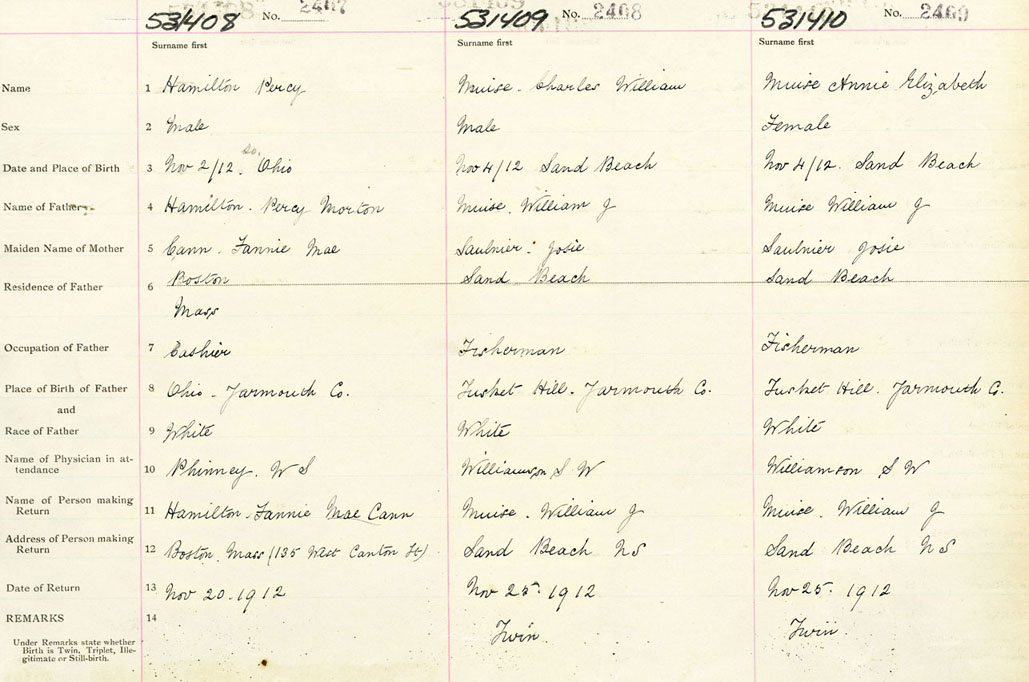 531408 No. 2467 531409 No. 2468 531410 No. 2469
Surname first Surname first Surname first
Name 1 Hamilton Percy Muise. Charles William Muise Annie Elizabeth
Sex 2 Male Male Female
Date and Place of Birth 3 Nov 2/12. So. Ohio Nov 4/12 Sand Beach Nov 4/12. Sand Beach
Name of Father 4 Hamilton. Percy Morton Muise. William J Muise William J
Maiden Name of Mother 5 Cann. Fannie Mae Saulnier. Josie Saulnier Josie
Residence of Father 6 Boston Sand Beach Sand Beach
Mass
Occupation of Father 7 Cashier Fisherman Fisherman
Place of Birth of Father 8 Ohio - Yarmouth Co. Tusket Hill. Yarmouth Co. Tusket Hill. Yarmouth Co.
and
Race of Father 9 White White White
Name of Physician in at-
tendance 10 Phinney. W S Williamson S W Williamson S W
Name of Person making
Return 11 Hamilton. Fannie Mae Cann Muise. William J Muise. William J
Address of Person making
Return 12 Boston. Mass (135 West Canton St) Sand Beach N S Sand Beach N S
Date of Return 13 Nov 20. 1912 Nov 25. 1912 Nov 25. 1912
REMARKS 14
Twin. Twin.
Under Remarks state whether
Birth is Twin, Triplet, Ille-
gitimate or Still-birth.